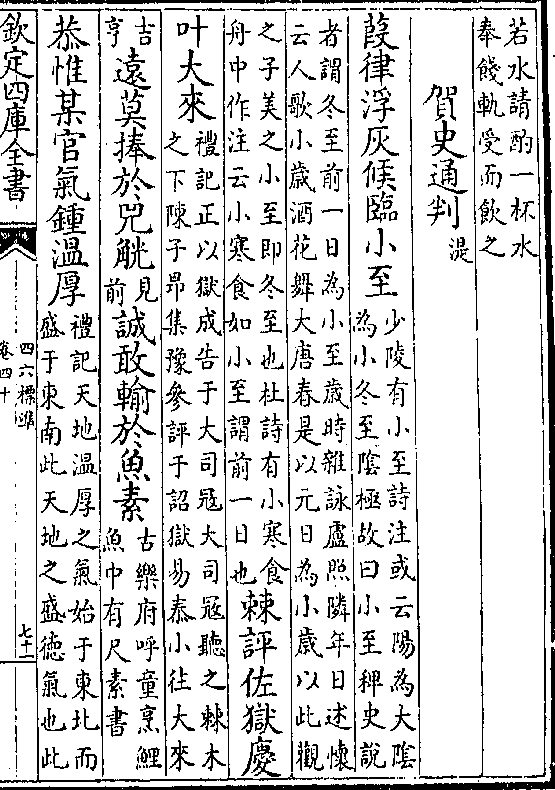 若水請酌一杯水
奉餞軌受而飲之
賀史通判湜
葭律浮灰候臨小至少陵有小至詩注或云陽為大陰
為小冬至陰極故曰小至稗史說
者謂冬至前一日為小至歲時雜詠盧照隣年日述懐
云人歌小歲酒花舞大唐春是以元日為小歲以此觀
之子美之小至即冬至也杜詩有小寒食
舟中作注云小寒食如小至謂前一日也棘評佐獄慶
叶大來禮記正以獄成告于大司冦大司冦聽之棘木
之下陳子昂集豫參評于詔獄易泰小往大來
吉
亨遠莫捧於兕觥見
前誠敢輸於魚素古樂府呼童烹鯉
魚中有尺素書
恭惟某官氣鍾溫厚禮記天地溫厚之氣始于東北而
盛于東南此天地之盛徳氣也此
欽定四庫全書
四六標準
卷四十
七十一